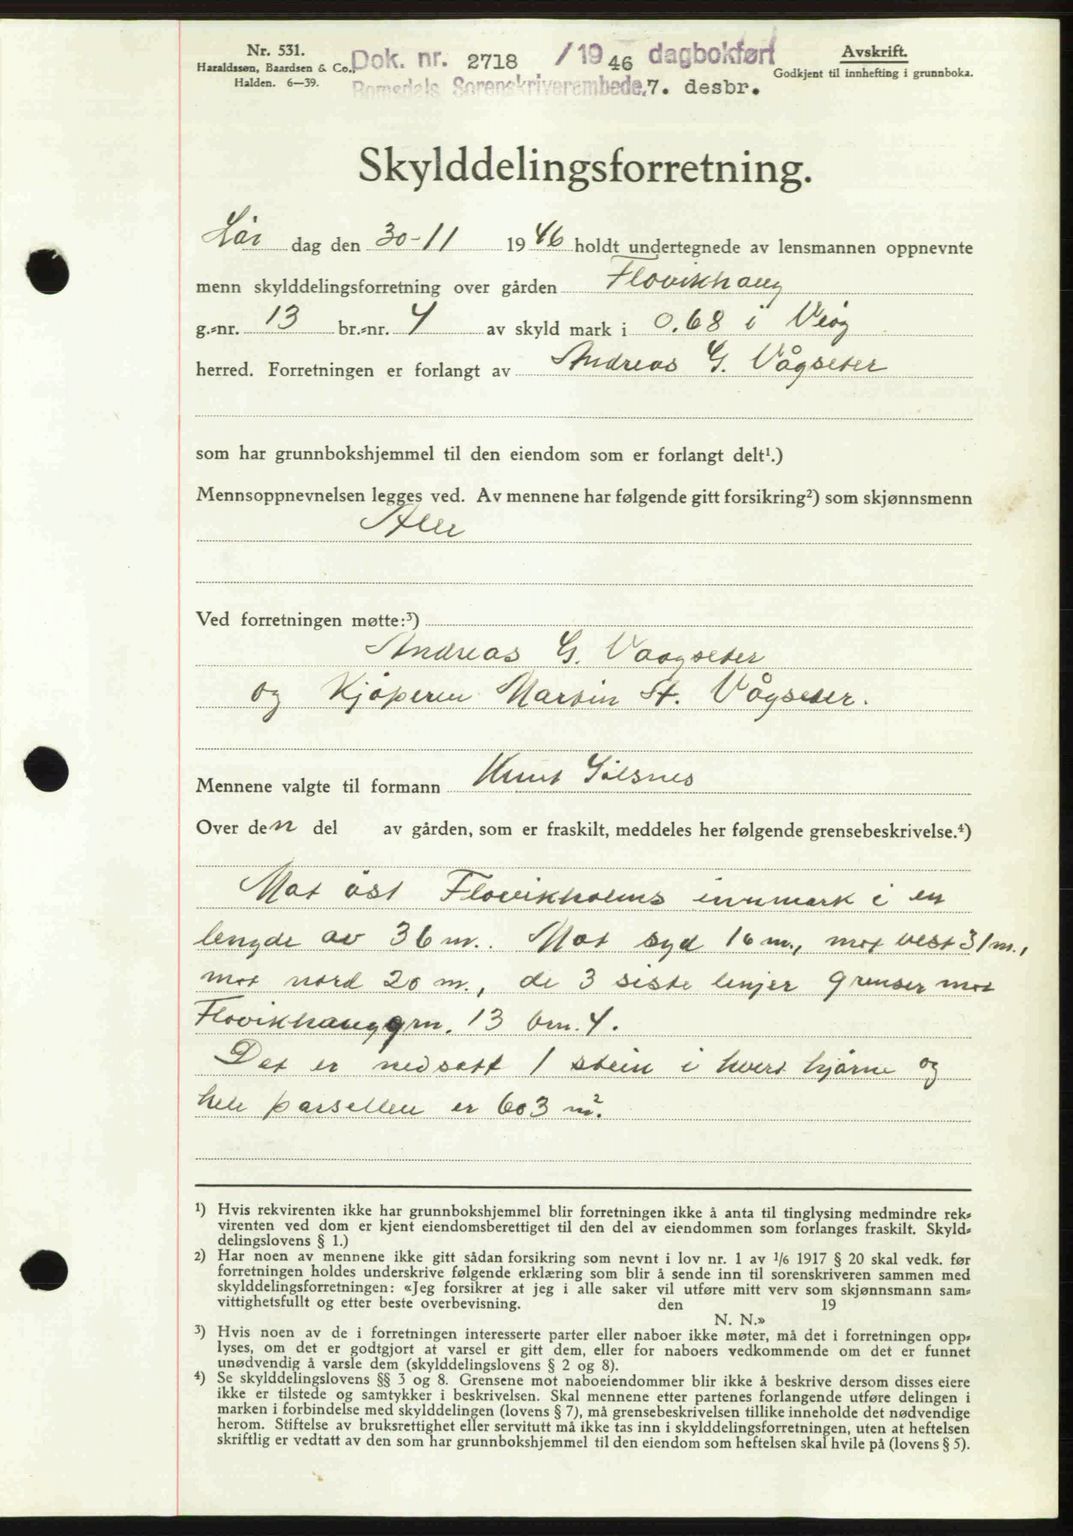 Nr. 531.
Haraldssen, Baardsen & Co.,
Halden. 6—39.
Dok. nr. 2718 /1946 dagbokført
Romsdals Sorenskriverembede, 7. desbr.
Avskrift.
Godkjent til innhefting i grunnboka.
Skylddelingsforretning.
Lør dag den 30-11 1946 holdt undertegnede av lensmannen oppnevnte
menn skylddelingsforretning over gården Flovikhaug
g.=nr. 13 br.=nr. 4 av skyld mark i 0.68 i Veøy
herred. Forretningen er forlangt av Andreas G. Vågseter
som har grunnbokshjemmel til den eiendom som er forlangt delt¹.)
Mennsoppnevnelsen legges ved. Av mennene har følgende gitt forsikring²) som skjønnsmenn
Alle
Ved forretningen møtte:³)
Andreas G. Vaagseter
og Kjøperen Martin A. Vågseter.
Mennene valgte til formann Knut Sølsnes
Over den del av gården, som er fraskilt, meddeles her følgende grensebeskrivelse.⁴)
Mot øst Flovikholms innmark i en
lengde av 36 m. Mot syd 16 m., mot vest 31 m.,
mot nord 20 m., de 3 siste linjer grenser mot
Flovikhaug grn. 13 brn. 4.
Det er nedsatt 1 stein i hvert hjørne og
hele parsellen er 603 m².
¹) Hvis rekvirenten ikke har grunnbokshjemmel blir forretningen ikke å anta til tinglysing medmindre rek=
virenten ved dom er kjent eiendomsberettiget til den del av eiendommen som forlanges fraskilt. Skyld=
delingslovens § 1.)
²) Har noen av mennene ikke gitt sådan forsikring som nevnt i lov nr. 1 av 1/6 1917 § 20 skal vedk. før
forretningen holdes underskrive følgende erklæring som blir å sende inn til sorenskriveren sammen med
skylddelingsforretningen: «Jeg forsikrer at jeg i alle saker vil utføre mitt verv som skjønnsmann sam=
vittighetsfullt og etter beste overbevisning. den 19
N. N.»
³) Hvis noen av de i forretningen interesserte parter eller naboer ikke møter, må det i forretningen opp=
lyses, om det er godtgjort at varsel er gitt dem, eller for naboers vedkommende om det er funnet
unødvendig å varsle dem (skylddelingslovens § 2 og 8).
⁴) Se skylddelingslovens §§ 3 og 8. Grensene mot naboeiendommer blir ikke å beskrive dersom disses eiere
ikke er tilstede og samtykker i beskrivelsen. Skal mennene etter partenes forlangende utføre delingen i
marken i forbindelse med skylddelingen (lovens § 7), må grensebeskrivelsen tillike inneholde det nødvendige
herom. Stiftelse av bruksrettighet eller servitutt må ikke tas inn i skylddelingsforretningen, uten at heftelsen
skriftlig er vedtatt av den som har grunnbokshjemmel til den eiendom som heftelsen skal hvile på (lovens § 5).